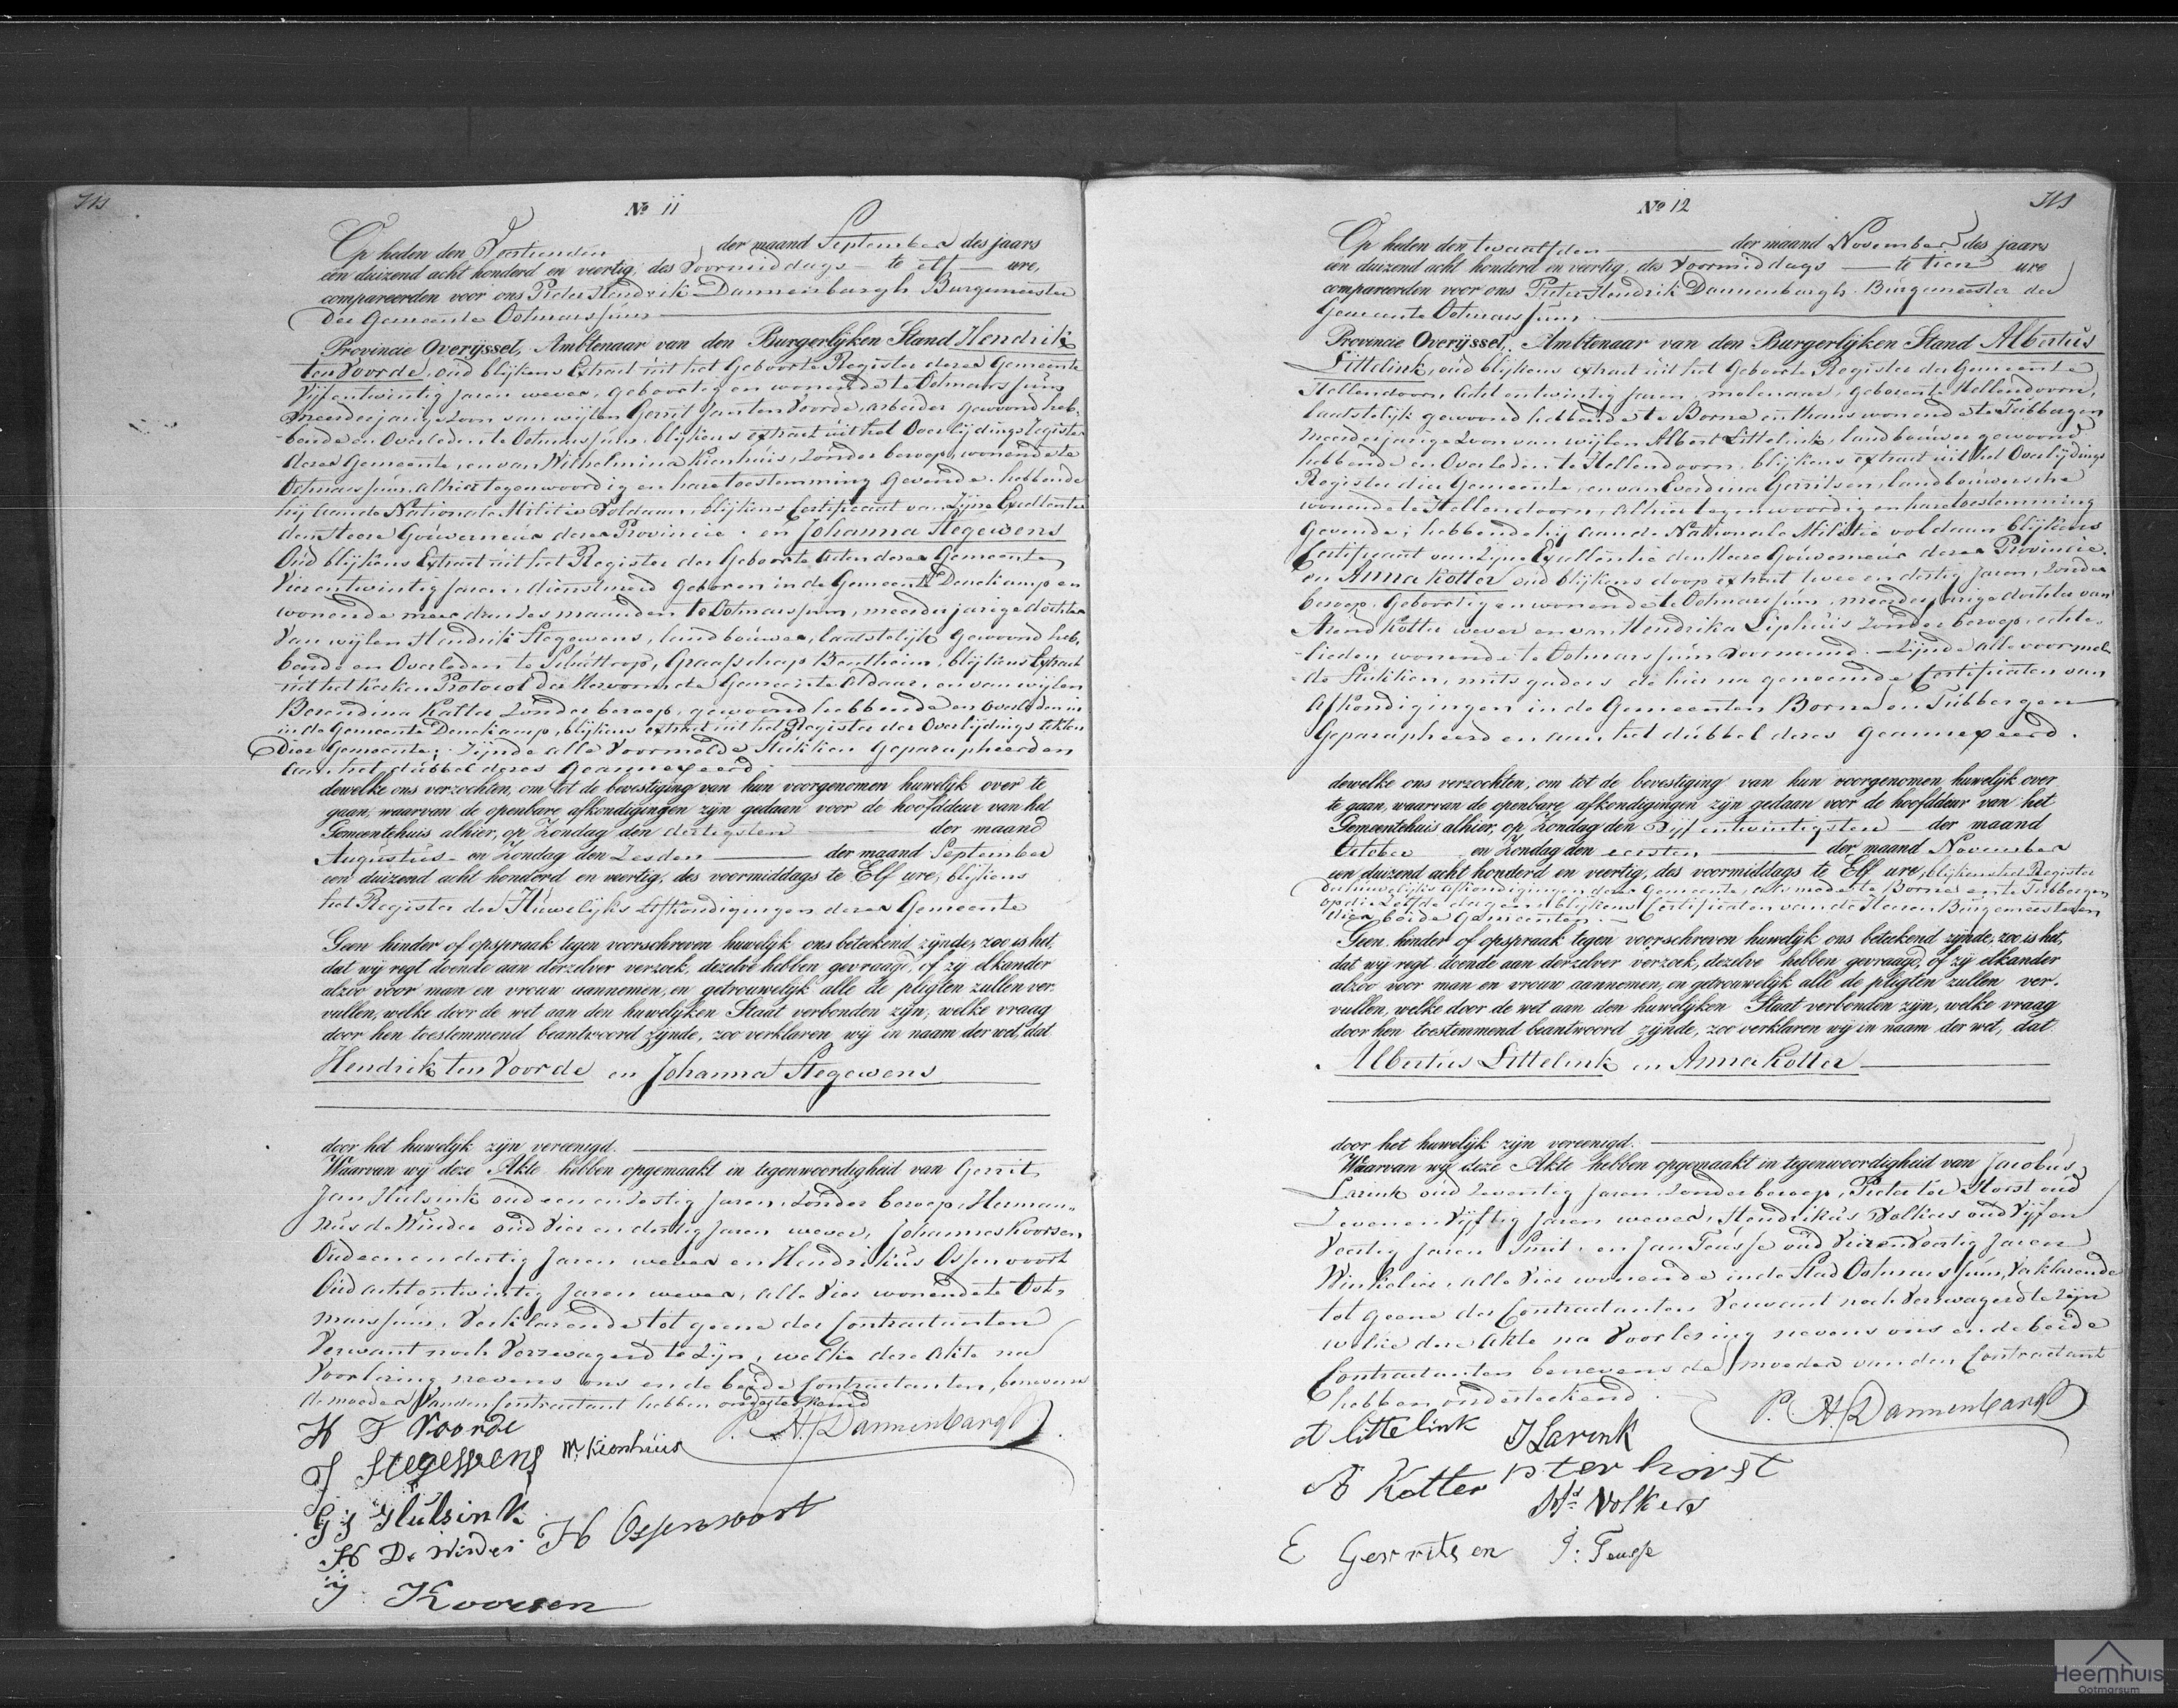 No 11
Op heden den Veertienden der maand September des jaars
een duizend acht honderd en veertig, des Voormiddags te elf ure,
compareerden voor ons Pieter Hendrik Dannenbargh Burgemeester
der Gemeente Ootmarssum
Provincie Overijssel, Ambtenaar van den Burgerlijken Stand Hendrik
ten Voorde, oud blijkens Extract uit het Geboorte Register dezer Gemeente
Vijfentwintig Jaren wever, geboortig en wonende te Ootmarssum
meerderjarige Zoon van wijlen Gerrit Jan ten Voorde, arbeider gewoond heb-
bende en Overleden te Ootmarssum, blijkens extract uit het Overlijdings register
dezer Gemeente, en van Wilhelmina Kienhuis, zonder beroep, wonende te
Ootmarssum, alhier tegenwoordig en hare toestemming Gevende. hebbende
hij aan de Nationale Militie Voldaan, blijkens Certificaat van Zijne Excellentie
den Heere Gouverneur dezer Provincie. en Johanna Stegewens
Oud blijkens Extract uit het Register der Geboorte Acten dezer Gemeente
Vierentwintig Jaren, dienstmeid geboren in de Gemeente Denekamp en
wonende meer dan zes maanden te Ootmarssum, meerderjarige dochter
Van wijlen Hendrik Stegewens, landbouwer, laatstelijk gewoond heb-
bende en Overleden te Schüttrop, Graafschap Bentheim, blijkens Extract
uit het Kerken Protocol der Hervormde Gemeente aldaar, en van wijlen
Berendina Katter Zonder beroep, gewoond hebbende en overleden
in de Gemeente Denekamp, blijkens extract uit het Register der Overlijdings Akten
dier Gemeente; Zijnde alle Voormelde Stukken Geparapheerd en
aan het dubbel dezes Geannexeerd.
dewelke ons verzochten, om tot de bevestiging van hun voorgenomen huwelijk over te
gaan, waarvan de openbare afkondigingen zijn gedaan voor de hoofddeur van het
Gemeentehuis alhier, op Zondag den dertigsten der maand
Augustus en Zondag den Zesden der maand September
een duizend acht honderd en veertig, des voormiddags te Elf ure, blijkens
het Register der Huwelijks Afkondigingen dezer Gemeente
Geen hinder of opspraak tegen voorschreven huwelijk ons beteekend zijnde, zoo is het,
dat wij regt doende aan derzelver verzoek, dezelve hebben gevraagd, of zij elkander
alzoo voor man en vrouw aannemen, en getrouwelijk alle de pligten zullen ver-
vullen, welke door de wet aan den huwelijken Staat verbonden zijn, welke vraag
door hen toestemmend beantwoord zijnde, zoo verklaren wij in naam der wet, dat
Hendrik ten Voorde en Johanna Stegewens
door het huwelijk zijn vereenigd.
Waarvan wij deze Akte hebben opgemaakt in tegenwoordigheid van Gerrit
Jan Hulsink oud een en Zestig Jaren, Zonder beroep, Herman-
nus de Winder oud Vier en dertig Jaren wever, Johannes Koorsen
Oud een en dertig Jaren wever en Hendrikus Ossenvoort
Oud achtentwintig Jaren wever, alle Vier wonende te Oot-
marssum, Verklarende tot geene der Contractanten
Verwant noch Verzwagerd te Zijn, welke deze Akte na
Voorlezing nevens ons en de beide Contractanten, benevens
de moeder Van den Contractant hebben onderteekend
H T Voorde
P. H. Dannenbargh
J Stegewens W. Kienhuis
G J Hulsink
H De Winder H Ossenvoort
J Koorsen
No 12
Op heden den twaalfden der maand November des jaars
een duizend acht honderd en veertig, des Voormiddags te tien ure
compareerden voor ons Pieter Hendrik Dannenbargh Burgemeester der
Gemeente Ootmarssum
Provincie Overijssel, Ambtenaar van den Burgerlijken Stand Albertus
Littelink, oud blijkens extract uit het Geboorte Register der Gemeente
Hellendoorn, Acht entwintig Jaren, molenaar, geboren te Hellendoorn,
laatstelijk gewoond hebbende te Borne en thans wonende te Tubbergen
meerderjarige Zoon van wijlen Albert Littelink, landbouwer gewoond
hebbende en Overleden te Hellendoorn, blijkens extract uit het Overlijdings
Register dier Gemeente, en van Everdina Gerritsen, landbouwersche
wonende te Hellendoorn, alhier tegenwoordig en hare toestemming
Gevende; hebbende hij aan de Nationale Militie voldaan blijkens
Certificaat van Zijne Excellentie den Heere Gouverneur dezer Provincie.
en Anna Kotter oud blijkens doop extract twee en dertig Jaren, Zonder
beroep, Geboortig en wonende te Ootmarssum, meerderjarige dochter van
Arend Kotter wever en van Hendrika Siphuis Zonder beroep, echte-
lieden wonende te Ootmarssum Voornoemd. Zijnde alle voormel-
de Stukken, mitsgaders de hier na genoemde Certificaten van
Afkondigingen in de Gemeenten Borne en Tubbergen
Geparapheerd en aan het dubbel dezes Geannexeerd.
dewelke ons verzochten, om tot de bevestiging van hun voorgenomen huwelijk over
te gaan, waarvan de openbare afkondigingen zijn gedaan voor de hoofddeur van het
Gemeentehuis alhier, op Zondag den Vijfentwintigsten der maand
October en Zondag den eersten der maand November
een duizend acht honderd en veertig, des voormiddags te Elf ure, blijkens het Register
der huwelijks afkondigingen dezer Gemeente, als mede te Borne en te Tubbergen
op die Zelfde dagen blijkens Certificaten van de Heeren Burgemeesteren
dier beide Gemeenten.
Geen hinder of opspraak tegen voorschreven huwelijk ons beteekend zijnde, zoo is het,
dat wij regt doende aan derzelver verzoek, dezelve hebben gevraagd, of zij elkander
alzoo voor man en vrouw aannemen, en getrouwelijk alle de pligten zullen ver-
vullen, welke door de wet aan den huwelijken Staat verbonden zijn, welke vraag
door hen toestemmend beantwoord zijnde, zoo verklaren wij in naam der wet, dat
Albertus Littelink en Anna Kotter
door het huwelijk zijn vereenigd.
Waarvan wij deze Akte hebben opgemaakt in tegenwoordigheid van Jacobus
Larink oud Zeventig Jaren Zonder beroep, Pieter ter Horst oud
Zevenen Vijftig Jaren wever, Hendrikus Volkers oud Vijf en
Veertig Jaren Smit, en Jan Teusse oud Vierenveertig Jaren
Winkelier, alle Vier wonende in de Stad Ootmarssum, Verklarende
tot geene der Contractanten Verwant noch Verzwagerd te Zijn
welke deze Akte na Voorlezing nevens ons en de beide
Contractanten benevens de moeder van den Contractant
hebben onderteekend.
A littelink J Larink
P. H. Dannenbargh
A Kotter P ter horst
Hs Volkers
E Gerritsen J: Teusse
Heemhuis
Ootmarsum